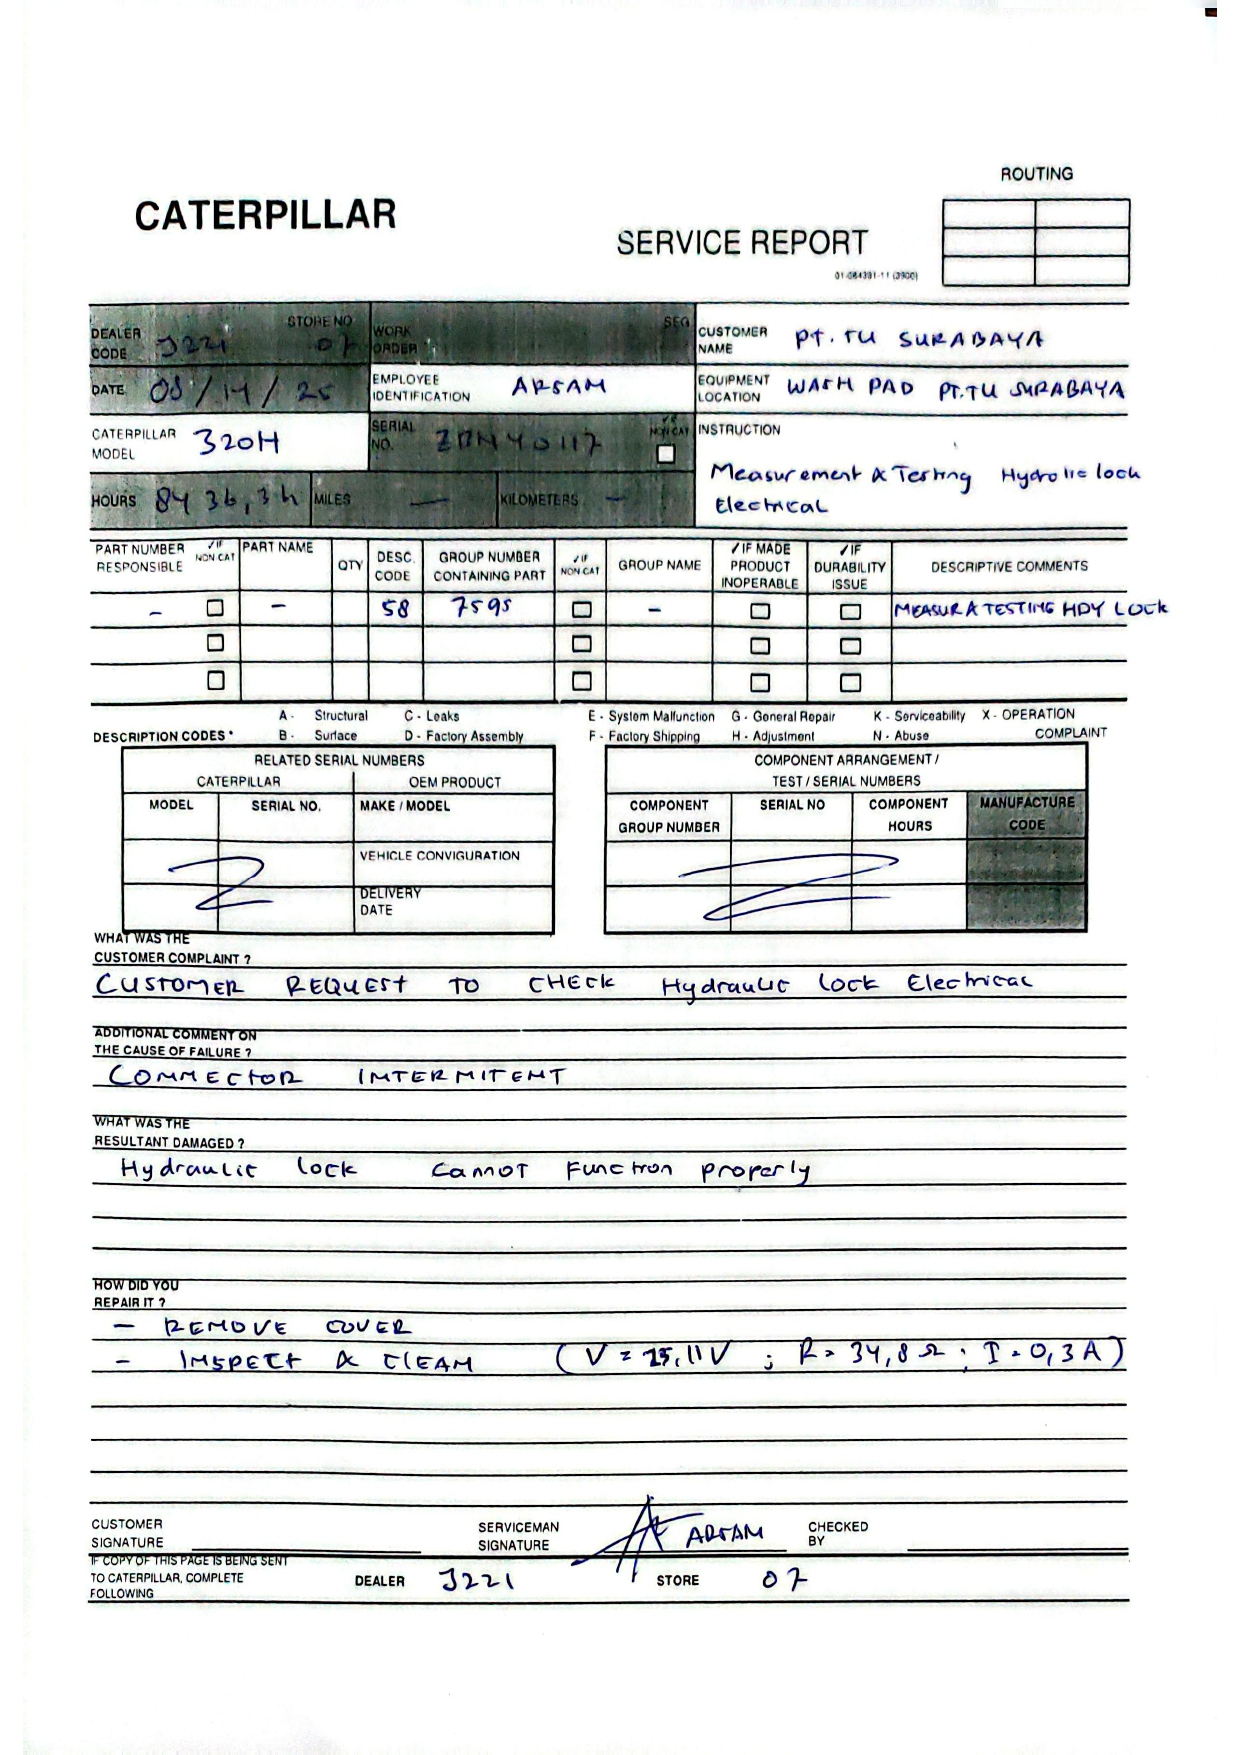 ROUTING
CATERPILLAR
SERVICE REPORT
01-084391-11 (3900)
DEALER CODE J221 STORE NO 07 WORK ORDER SEG CUSTOMER NAME PT. TU SURABAYA
DATE 08/14/25 EMPLOYEE IDENTIFICATION ARSAM EQUIPMENT LOCATION WASH PAD PT.TU SURABAYA
CATERPILLAR MODEL 320H SERIAL NO. √IF NON CAT INSTRUCTION
Measurement & Testing Hydrolic lock
Electrical
HOURS 8436,3h MILES — KILOMETERS –
PART NUMBER RESPONSIBLE √IF NON CAT PART NAME QTY DESC. CODE GROUP NUMBER CONTAINING PART √IF NON CAT GROUP NAME √IF MADE PRODUCT INOPERABLE √IF DURABILITY ISSUE DESCRIPTIVE COMMENTS
– – 58 7595 – MEASUR & TESTING HDY LOCK
A - Structural C - Leaks E - System Malfunction G - General Repair K - Serviceability X - OPERATION
DESCRIPTION CODES * B - Surface D - Factory Assembly F - Factory Shipping H - Adjustment N - Abuse COMPLAINT
RELATED SERIAL NUMBERS
CATERPILLAR OEM PRODUCT
MODEL SERIAL NO. MAKE / MODEL
VEHICLE CONVIGURATION
DELIVERY
DATE
COMPONENT ARRANGEMENT /
TEST / SERIAL NUMBERS
COMPONENT GROUP NUMBER SERIAL NO COMPONENT HOURS MANUFACTURE CODE
WHAT WAS THE
CUSTOMER COMPLAINT ?
CUSTOMER REQUEST TO CHECK Hydraulic lock Electrical
ADDITIONAL COMMENT ON
THE CAUSE OF FAILURE ?
CONNECTOR INTERMITENT
WHAT WAS THE
RESULTANT DAMAGED ?
Hydraulic lock Cannot Function properly
HOW DID YOU
REPAIR IT ?
– REMOVE COVER
– INSPECT & CLEAN (V = 25,11V ; R = 34,8 Ω ; I = 0,3 A)
CUSTOMER SIGNATURE SERVICEMAN SIGNATURE ARSAM CHECKED BY
IF COPY OF THIS PAGE IS BEING SENT
TO CATERPILLAR, COMPLETE DEALER J221 STORE 07
FOLLOWING